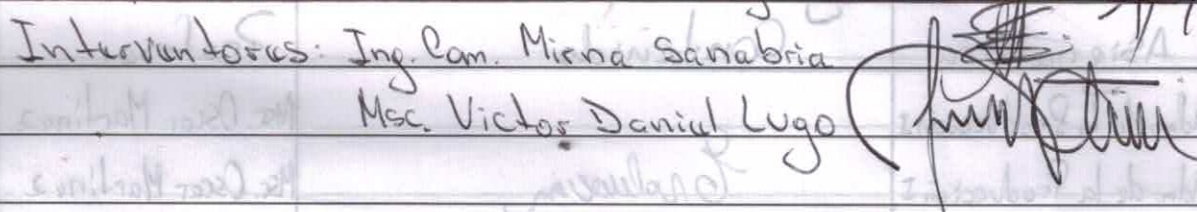 Interventores: Ing. Com. Mirna Sanabria
Msc. Victor Daniel Lugo